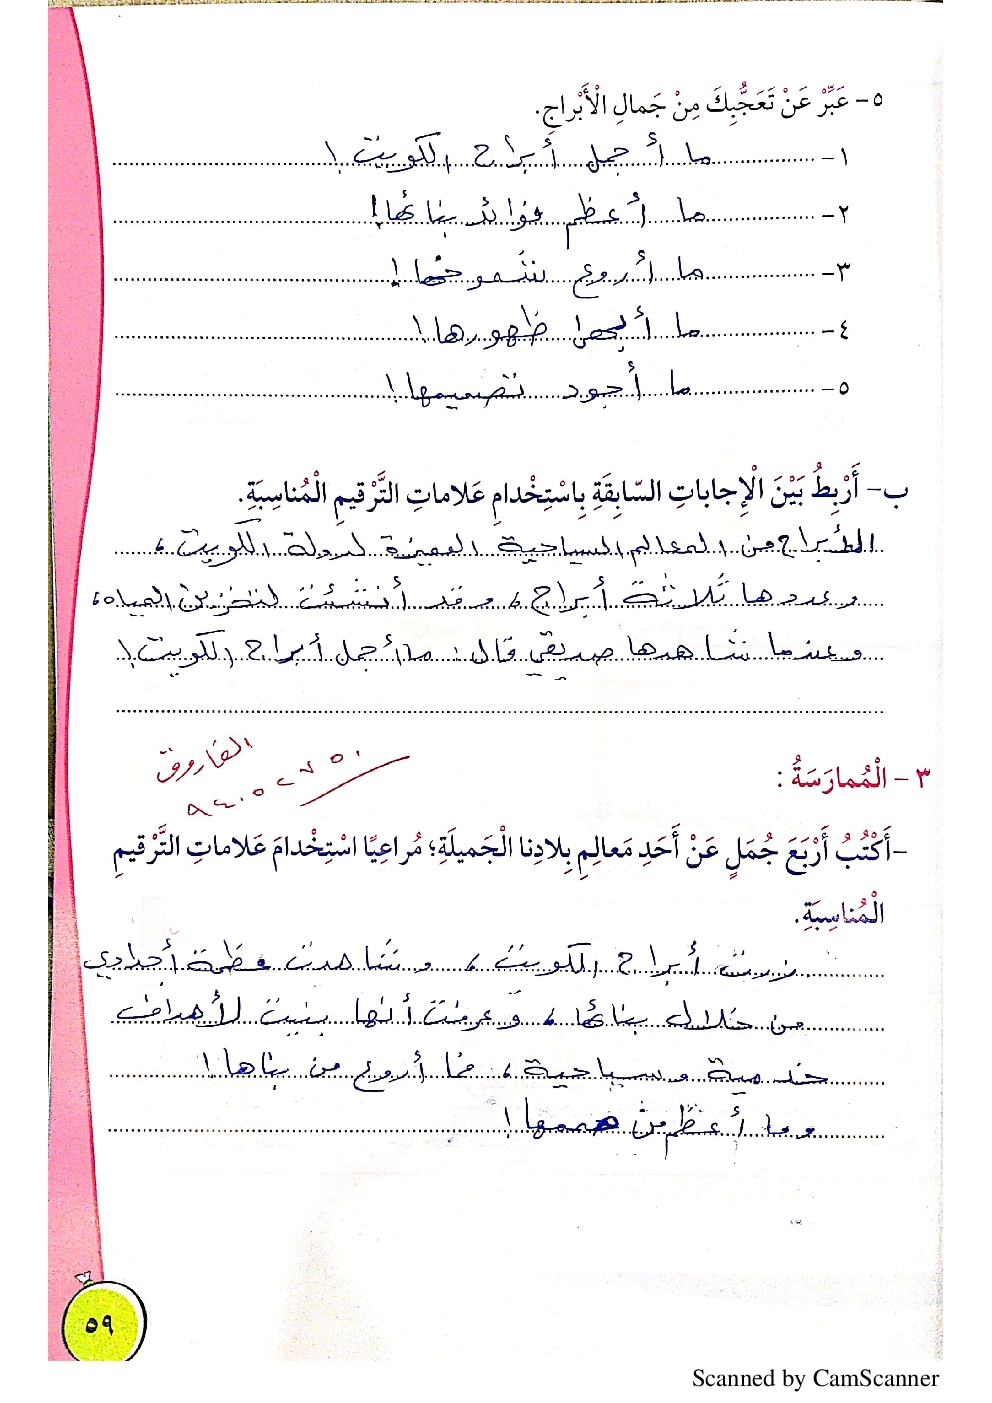 ٥- عَبِّرْ عَنْ تَعَجُّبِكَ مِنْ جَمالِ الْأَبْراجِ.
١- ما أجمل أبراج الكويت!
٢- ما أعظم فوائد بنائها!
٣- ما أروع شموخها!
٤- ما أبهى ظهورها!
٥- ما أجود تصميمها!
ب- أَرْبِطُ بَيْنَ الْإِجاباتِ السّابِقَةِ بِاسْتِخْدامِ عَلاماتِ التَّرْقيمِ الْمُناسِبَةِ.
الأبراج من المعالم السياحية المميزة لدولة الكويت،
وعددها ثلاثة أبراج، وقد أنشئت لتخزين المياه،
وعندما شاهدها صديقي قال: ما أجمل أبراج الكويت!
الفاروق
٣- الْمُمارَسَةُ:
- أَكْتُبُ أَرْبَعَ جُمَلٍ عَنْ أَحَدِ مَعالِمِ بِلادِنا الْجَميلَةِ؛ مُراعِيًا اسْتِخْدامَ عَلاماتِ التَّرْقيمِ
الْمُناسِبَةِ.
زرت أبراج الكويت، وشاهدت عظمة أجدادي
من خلال بنائها، وعرفت أنها بنيت لأهداف
خدمية وسياحية، فما أروع من بناها!
وما أعظم من صممها!
٥٩
Scanned by CamScanner